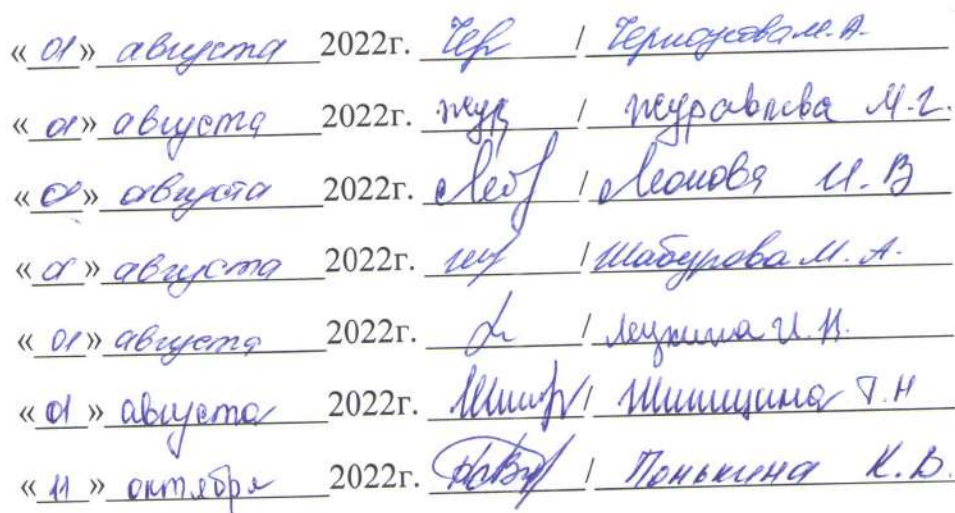 «01» августа 2022г. Чер / Черноусова М. А.
«01» августа 2022г. Жур / Журавлева М. Г.
«01» августа 2022г. / Леонова И. В
«01» августа 2022г. / Шабурова М. А.
«01» августа 2022г. / Лецкина И. Н.
«01» августа 2022г. / Шишицина Т. Н
«11» октября 2022г. / Понькина К. В.